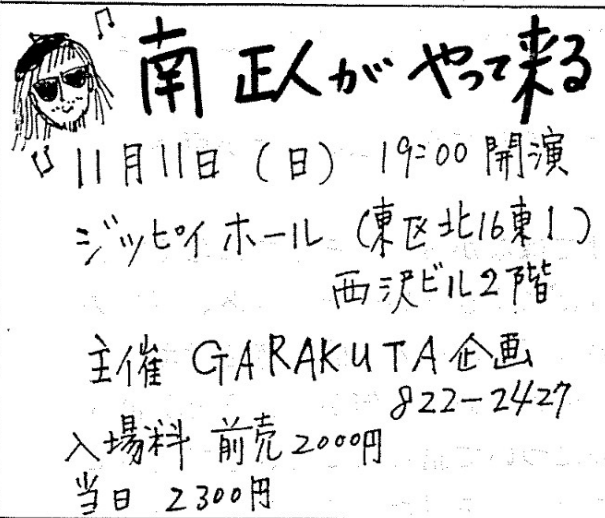 南 正人が やって来る
11月11日 (日) 19:00 開演
ジッピイ ホール (東区北16東1)
西沢ビル2階
主催 GARAKUTA 企画
822-2427
入場料 前売 2000円
当日 2300円